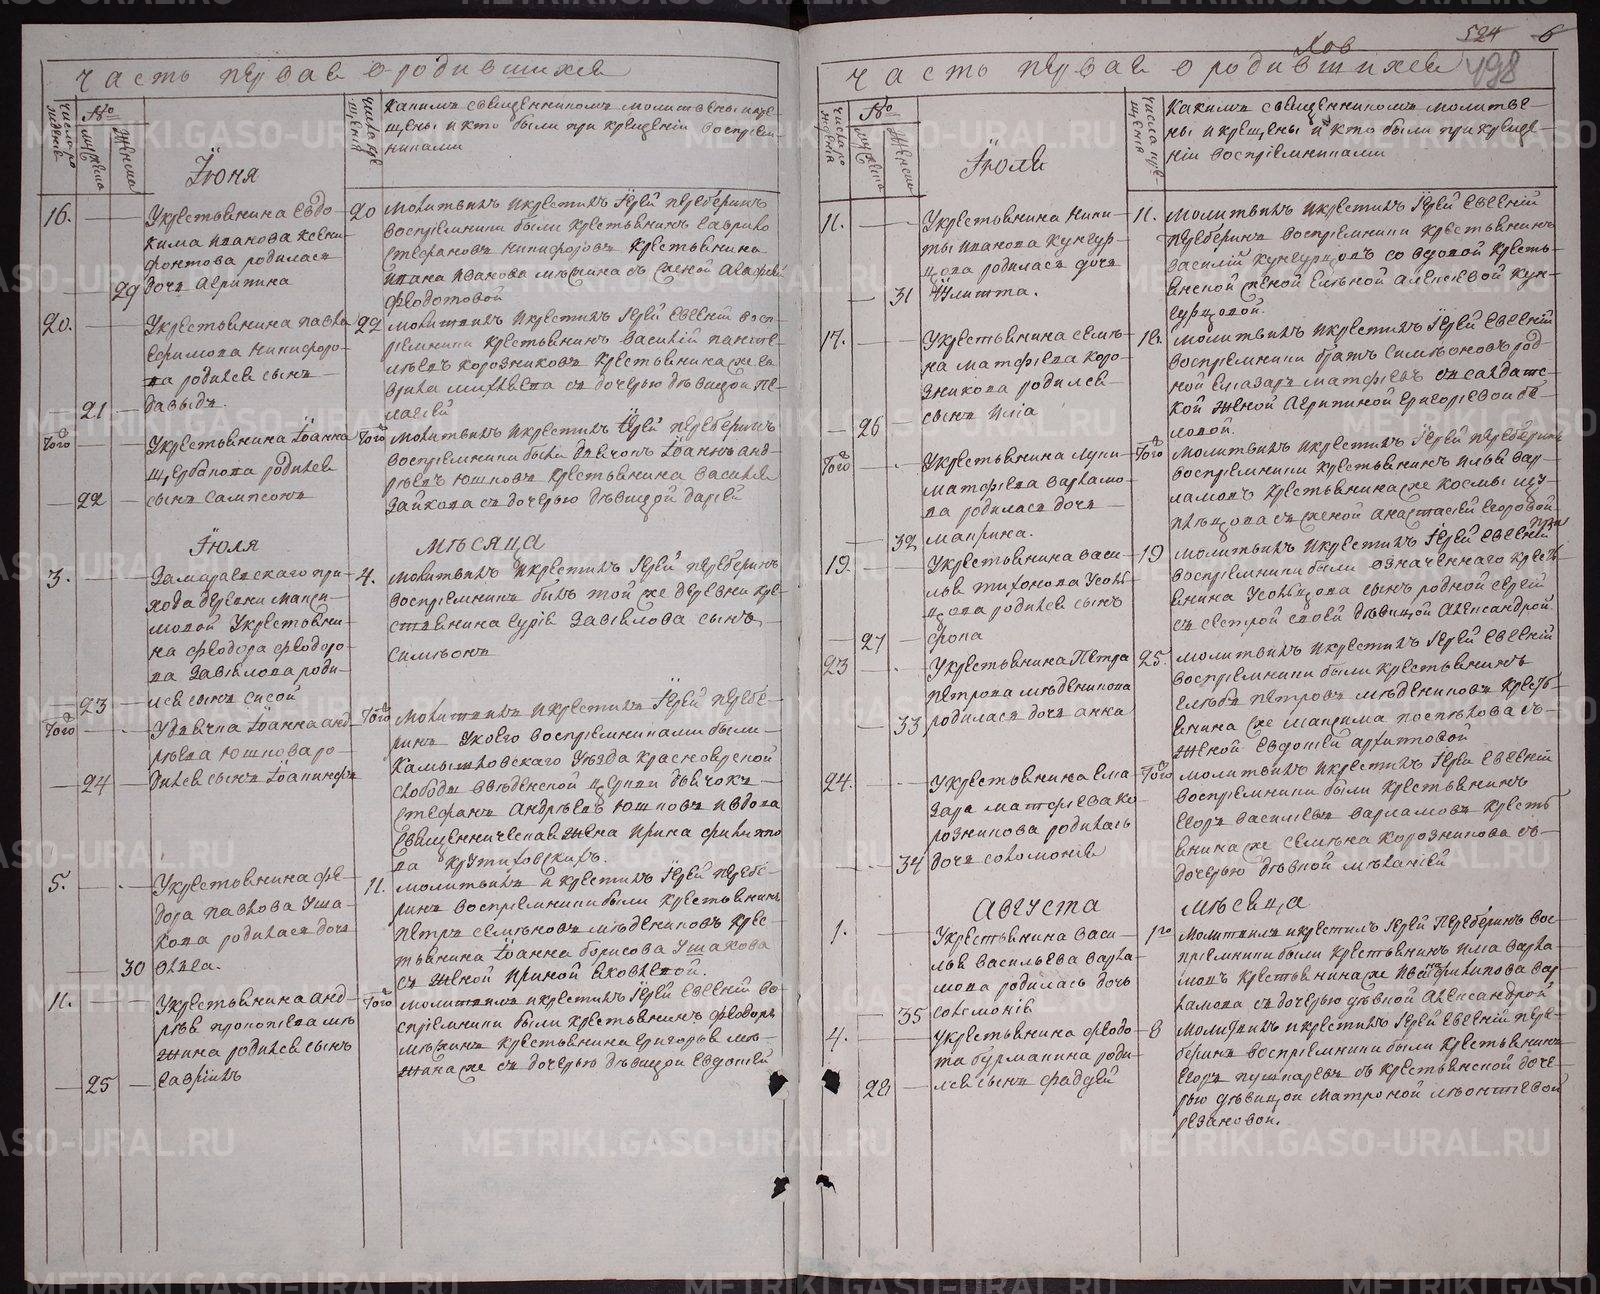 часть первая о родившихся
число рождения
№
мужеска
женска
Іюня
числа крещения
какимъ священникомъ молитвены и кре-
щены и кто были при крещеніи воспріем-
никами
16.
29
У крестьянина Евдо-
кима Иванова Ксено-
фонтова родилась
дочь Агрипина
20
молитвилъ и крестилъ Іерей Переберинъ
воспріемники были крестьянинъ Гаврило
Стефановъ Никифоровъ крестьянина
Ивана Иванова Мѣхина съ женой Агафьей
Федотовой
20.
21
У крестьянина Павла
Ефимова Никифоро-
ва родился сынъ
Давыдъ.
22
молитвилъ и крестилъ Іерей Евгеній восп-
ріемники крестьянинъ Василій Панте-
лѣевъ Коровниковъ крестьянина же Га-
врила Михѣева съ дочерью дѣвицой Пе-
лагіей
Того
22
У крестьянина Іоанна
Щербакова родился
сынъ Сампсонъ
Того
молитвилъ и крестилъ Іерей Переберинъ
воспріемники были дьячокъ Іоаннъ Анд-
рѣевъ Юшковъ крестьянина Василья
Зайкова съ дочерью дѣвицой Дарьей
Іюля
мѣсяца
3.
23
Замараевскаго при-
хода деревни Макси-
мовой У крестьяни-
на Федора Федоро-
ва Завьялова роди-
лся сынъ Сисой
4.
молитвилъ и крестилъ Іерей Переберинъ
воспріемникъ былъ той же деревни кре-
стьянина Гурія Завьялова сынъ
Симеонъ
Того
24
У дьячка Іоанна Анд-
рѣева Юшкова ро-
дился сынъ Іоанникій
Того
молитвилъ и крестилъ Іерей Перебе-
ринъ У коего воспріемниками были
Камышловскаго Уѣзда Красноярской
слободы Введенской церкви дьячокъ
Стефанъ Андрѣевъ Юшковъ и вдова
Священническая жена Ирина Филиппо
ва Крутиховскихъ.
5.
30
У крестьянина Фе-
дора Павлова Уша-
кова родилась дочь
Ольга.
11.
молитвилъ и крестилъ Іерей Перебе-
ринъ воспріемники были крестьянинъ
Петръ Семеновъ Мѣдениковъ крес-
тьянина Іоанна Борисова Ушакова
съ женой Ириной Яковлевой.
11.
25
У крестьянина Анд-
рѣя Прокопьева Мѣ-
хина родился сынъ
Гавріилъ
Того
молитвилъ и крестилъ Іерей Евгеній во-
спріемники были крестьянинъ Федоръ
Мѣхинъ крестьянина Григорья Мѣ-
хина же съ дочерью дѣвицой Евдокіей
524
6
498
часть первая о родившихся
число рождения
№
мужеска
женска
Іюля
числа крещения
какимъ священникомъ молитве-
ны и крещены и кто были при креще-
ніи воспріемниками
11.
31
У крестьянина Ники-
ты Иванова Кунгур-
цова родилась дочь
Іулитта.
11.
молитвилъ и крестилъ Іерей Евгеній
Переберинъ воспріемники крестьянинъ
Василій Кунгурцовъ со вдовой кресть-
янской женой Еленой Алексѣевой Кун-
гурцовой.
17.
26
У крестьянина Семе-
на Матфѣева Коро-
вникова родился
сынъ Илія
18.
молитвилъ и крестилъ Іерей Евгеній
воспріемники братъ Симеоновъ род-
ной Елазаръ Матфѣевъ съ салдатс-
кой женой Агрипиной Григорьевой Бе-
ловой.
Того
32
У крестьянина Луки
Матфѣева Варламо-
ва родилась дочь
Макрина.
Того
молитвилъ и крестилъ Іерей Переберинъ
воспріемники крестьянинъ Илья Вар-
ламовъ крестьянина же Космы Шу-
плѣцова съ женой Анастасьей Егоровой
19.
27
У крестьянина Васи-
лья Тихонова Усоль-
цова родился сынъ
Фока
19
молитвилъ и крестилъ Іерей Евгеній
воспріемники были означеннаго кресть-
янина Усольцова сынъ родной Сергѣй
съ сестрой своей дѣвицой Александрой
23
33
У крестьянина Петра
Петрова Мѣденикова
родилась дочь Анна
25.
молитвилъ и крестилъ Іерей Евгеній
воспріемники были крестьянинъ
Глѣбъ Петровъ Мѣдениковъ кресть-
янина же Максима Поспѣлова съ
женой Евдокіей Архиповой
24.
34
У крестьянина Ела-
зара Матфѣева Ко-
ровникова родилась
дочь Соломонія
Того
молитвилъ и крестилъ Іерей Евгеній
воспріемники были крестьянинъ
Егоръ Васильевъ Варламовъ кресть-
янина же Семена Коровникова съ
дочерью дѣвкой Меланіей
Августа
мѣсяца
1.
35
У крестьянина Васи-
лья Васильева Варла-
мова родилась дочь
Соломонія
1го
молитвилъ и крестилъ Іерей Переберинъ вос-
пріемники были крестьянинъ Илья Варла-
мовъ крестьянина же Ивана Филипова Вар-
ламова съ дочерью дѣвкой Александрой
4.
28
У крестьянина Федо-
та Бурмакина роди-
лся сынъ Фаддей
8
молитвилъ и крестилъ Іерей Евгеній Пере-
беринъ воспріемники были крестьянинъ
Егоръ Пушкаревъ съ крестьянской доче-
рью дѣвицой Матроной Леонтьевой
Резановой.